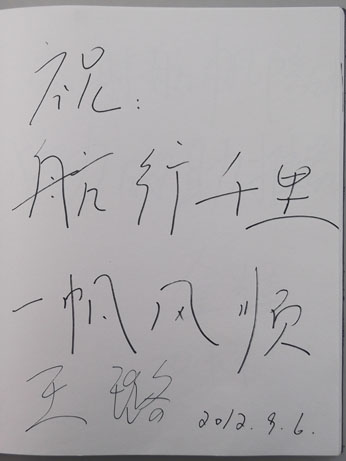 祝:
航行千里
一帆风顺
王璐 2012.9.6.